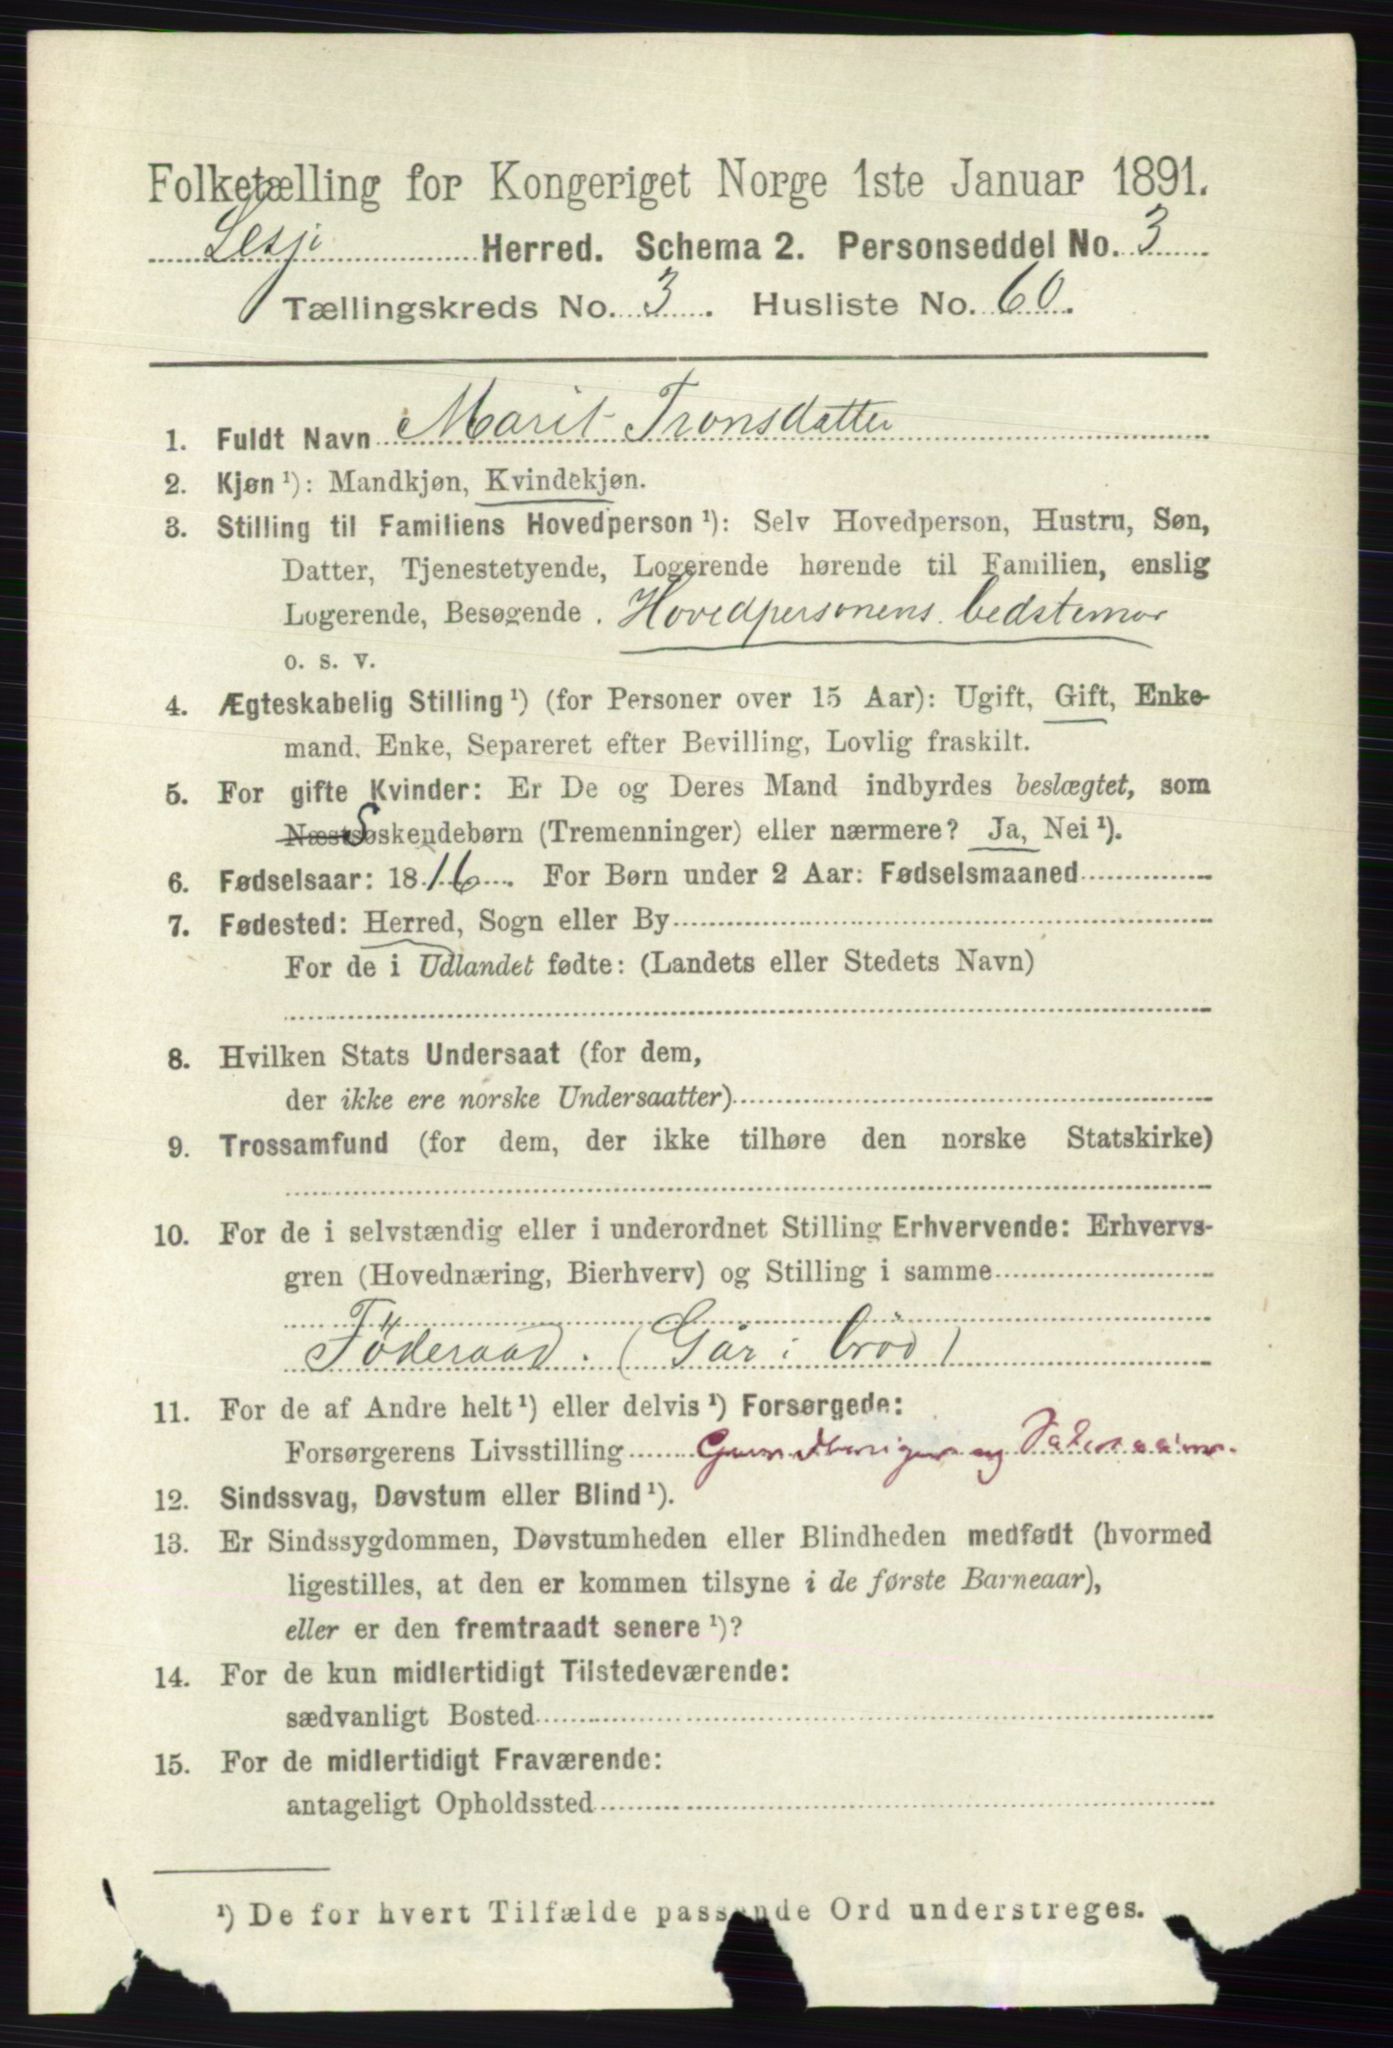 Folketælling for Kongeriget Norge 1ste Januar 1891.
Lesje Herred. Schema 2. Personseddel No. 3
Tællingskreds No. 3. Husliste No. 60.
1. Fuldt Navn Marit Tronsdatter
2. Kjøn ¹): Mandkjøn, Kvindekjøn.
3. Stilling til Familiens Hovedperson ¹): Selv Hovedperson, Hustru, Søn,
Datter, Tjenestetyende, Logerende hørende til Familien, enslig
Logerende, Besøgende. Hovedpersonens bedstemor
o. s. v.
4. Ægteskabelig Stilling ¹) (for Personer over 15 Aar): Ugift, Gift, Enke-
mand, Enke, Separeret efter Bevilling, Lovlig fraskilt.
5. For gifte Kvinder: Er De og Deres Mand indbyrdes beslægtet, som
NæstSøskendebørn (Tremenninger) eller nærmere? Ja, Nei ¹).
6. Fødselsaar: 1816. For Børn under 2 Aar: Fødselsmaaned
7. Fødested: Herred, Sogn eller By
For de i Udlandet fødte: (Landets eller Stedets Navn)
8. Hvilken Stats Undersaat (for dem,
der ikke ere norske Undersaatter)
9. Trossamfund (for dem, der ikke tilhøre den norske Statskirke)
10. For de i selvstændig eller i underordnet Stilling Erhvervende: Erhvervs-
gren (Hovednæring, Bierhverv) og Stilling i samme
Föderaad. (Går i brød)
11. For de af Andre helt ¹) eller delvis ¹) Forsørgede:
Forsørgerens Livsstilling og
12. Sindssvag, Døvstum eller Blind ¹).
13. Er Sindssygdommen, Døvstumheden eller Blindheden medfødt (hvormed
ligestilles, at den er kommen tilsyne i de første Barneaar),
eller er den fremtraadt senere ¹)?
14. For de kun midlertidigt Tilstedeværende:
sædvanligt Bosted
15. For de midlertidigt Fraværende:
antageligt Opholdssted
¹) De for hvert Tilfælde passende Ord understreges.